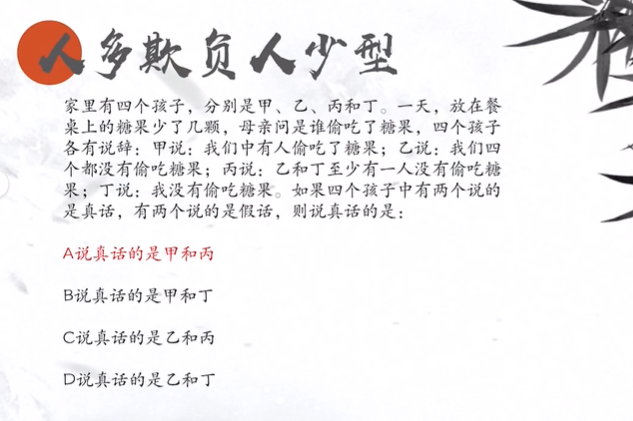 人多欺负人少型
家里有四个孩子，分别是甲、乙、丙和丁。一天，放在餐
桌上的糖果少了几颗，母亲问是谁偷吃了糖果，四个孩子
各有说辞：甲说：我们中有人偷吃了糖果；乙说：我们四
个都没有偷吃糖果；丙说：乙和丁至少有一人没有偷吃糖
果；丁说：我没有偷吃糖果。如果四个孩子中有两个说的
是真话，有两个说的是假话，则说真话的是：
A说真话的是甲和丙
B说真话的是甲和丁
C说真话的是乙和丙
D说真话的是乙和丁